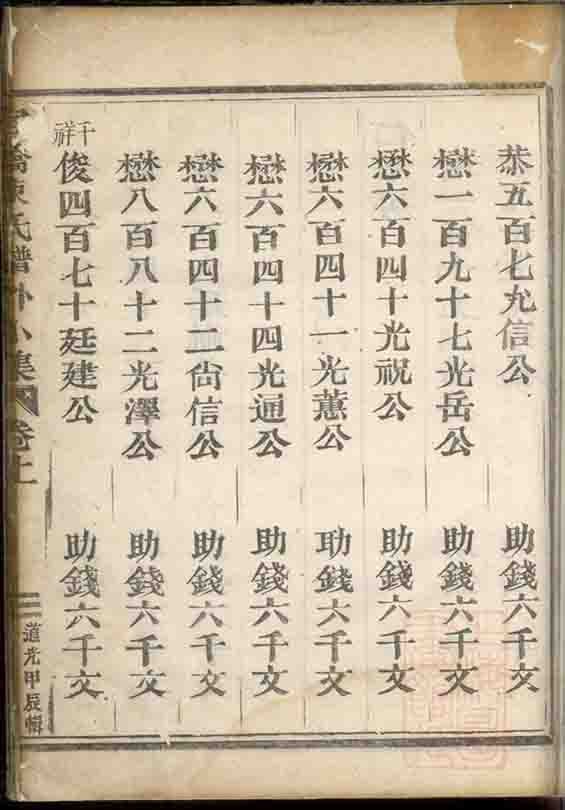 恭五百七允信公 助錢六千文
懋一百九十七光岳公 助錢六千文
懋六百四十光祝公 助錢六千文
懋六百四十一光蕙公 助錢六千文
懋六百四十四光通公 助錢六千文
懋六百四十二尙信公 助錢六千文
懋八百八十二光澤公 助錢六千文
千祥 俊四百七十廷建公 助錢六千文
氏譜外集 卷上
道光甲辰輯